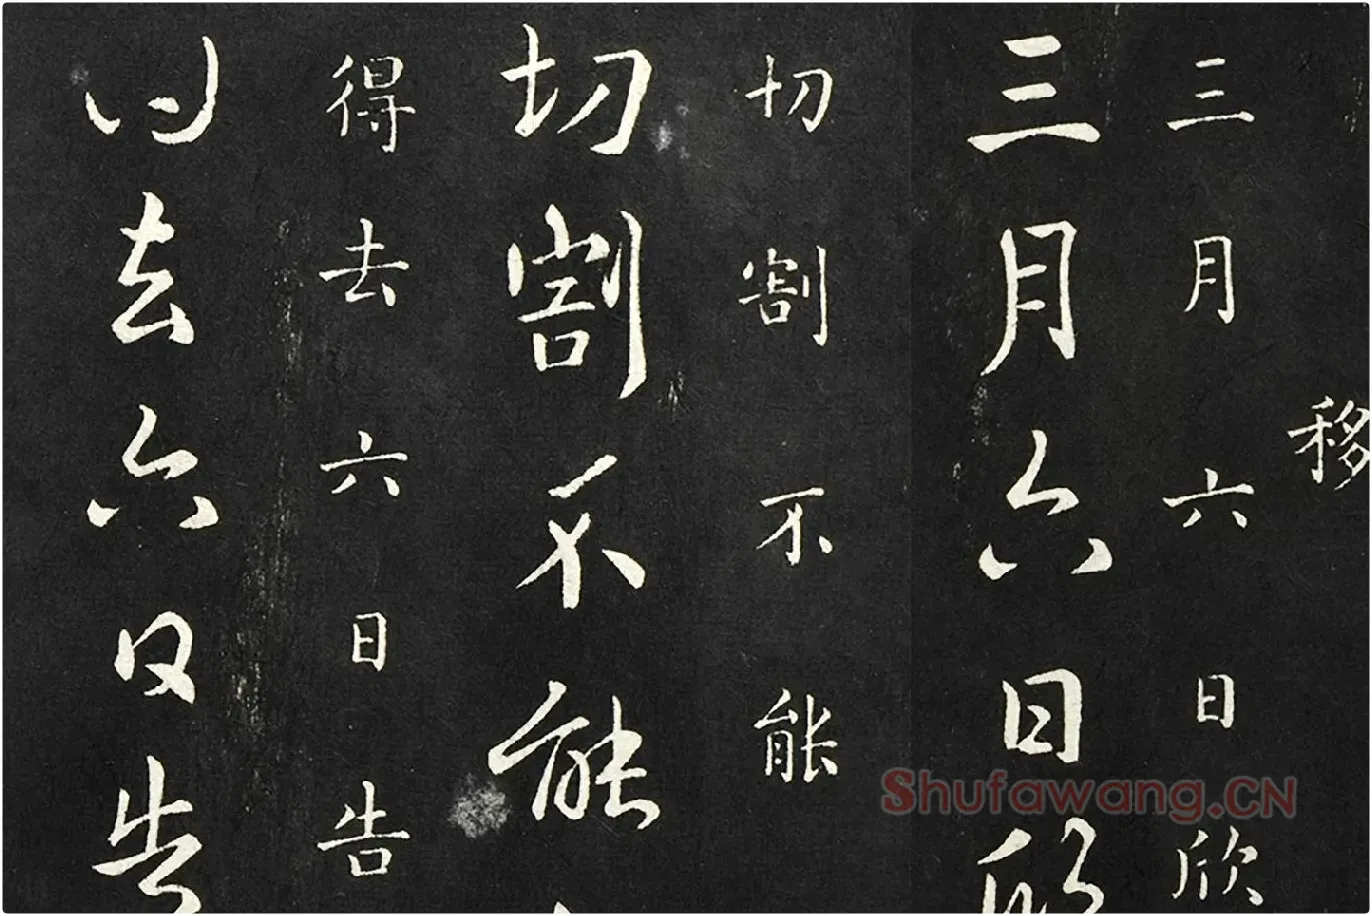 移
三月六日欣
三月六日欣
切割不能
切割不能
得去六日告
得去六日告
Shufawang.CN